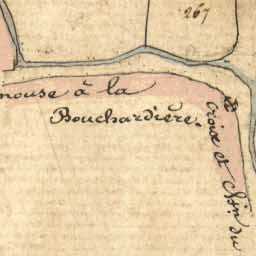 267
mouse à la
Bouchardière.
croix et chin. du